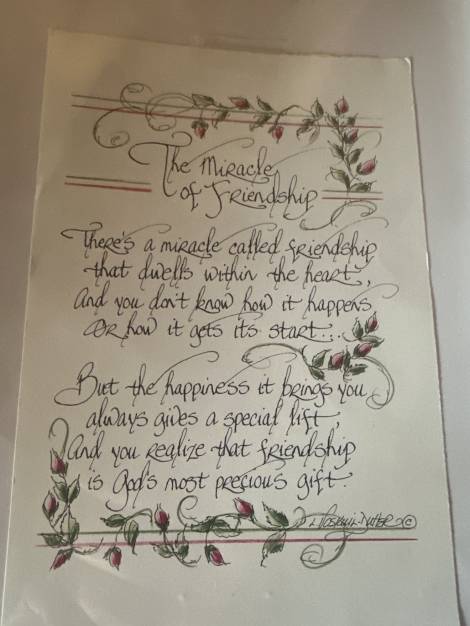 The Miracle
of Friendship
There's a miracle called friendship
that dwells within the heart,
And you don't know how it happens
or how it gets its start...
But the happiness it brings you
always gives a special lift,
And you realize that friendship
is God's most precious gift
©